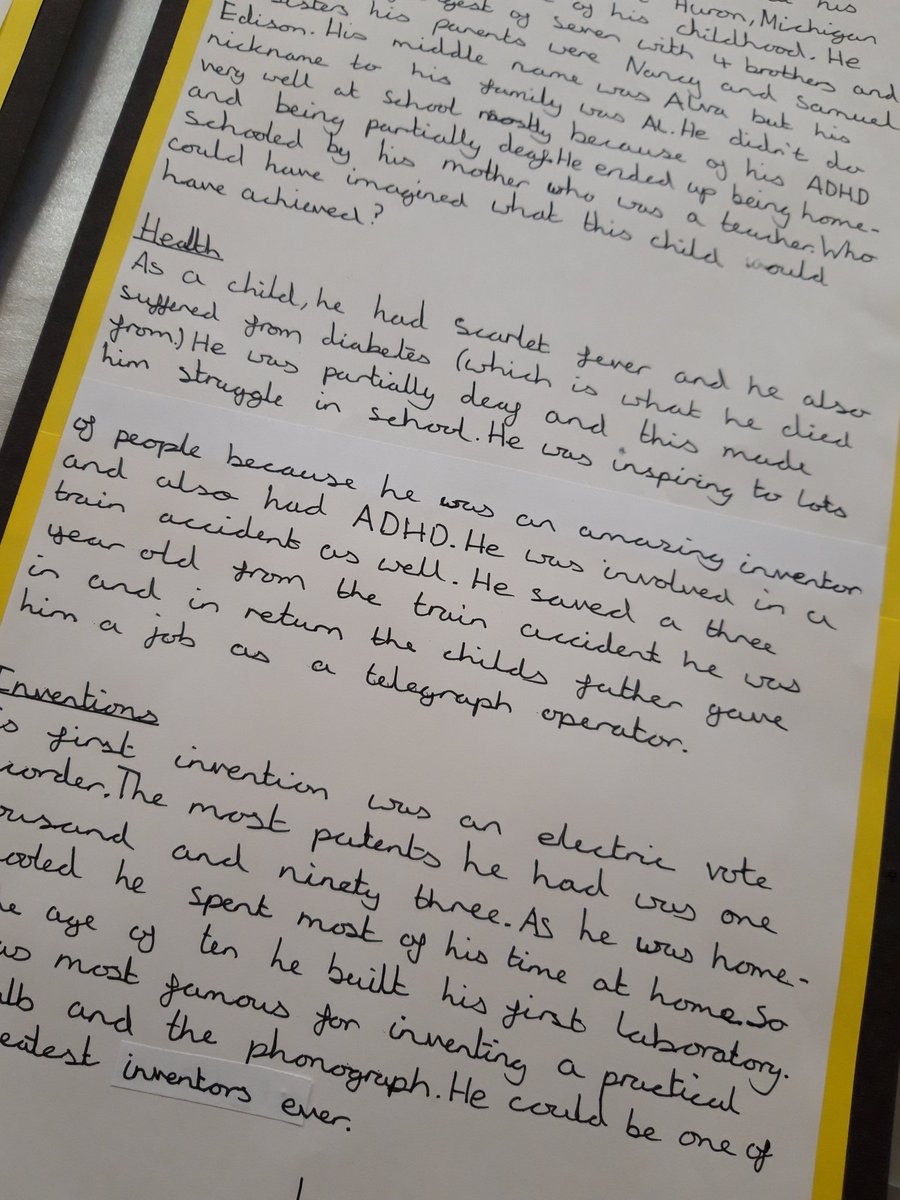 his
Huron, Michigan
of his childhood. He
of seven with 4 brothers and
sisters his parents were Nancy and Samuel
Edison. His middle name was Alva but his
nickname to his family was Al. He didn't do
very well at school mostly because of his ADHD
and being partially deaf. He ended up being home-
schooled by his mother who was a teacher. Who
could have imagined what this child would
have achieved?
Health
As a child, he had scarlet fever and he also
suffered from diabetes (which is what he died
from.) He was partially deaf and this made
him struggle in school. He was inspiring to lots
of people because he was an amazing inventor
and also had ADHD. He was involved in a
train accident as well. He saved a three
year old from the train accident he was
in and in return the childs father gave
him a job as a telegraph operator.
Inventions
first invention was an electric vote
The most patents he had was one
and ninety three. As he was home-
he spent most of his time at home. So
age of ten he built his first laboratory.
most famous for inventing a practical
and the phonograph. He could be one of
inventors ever.